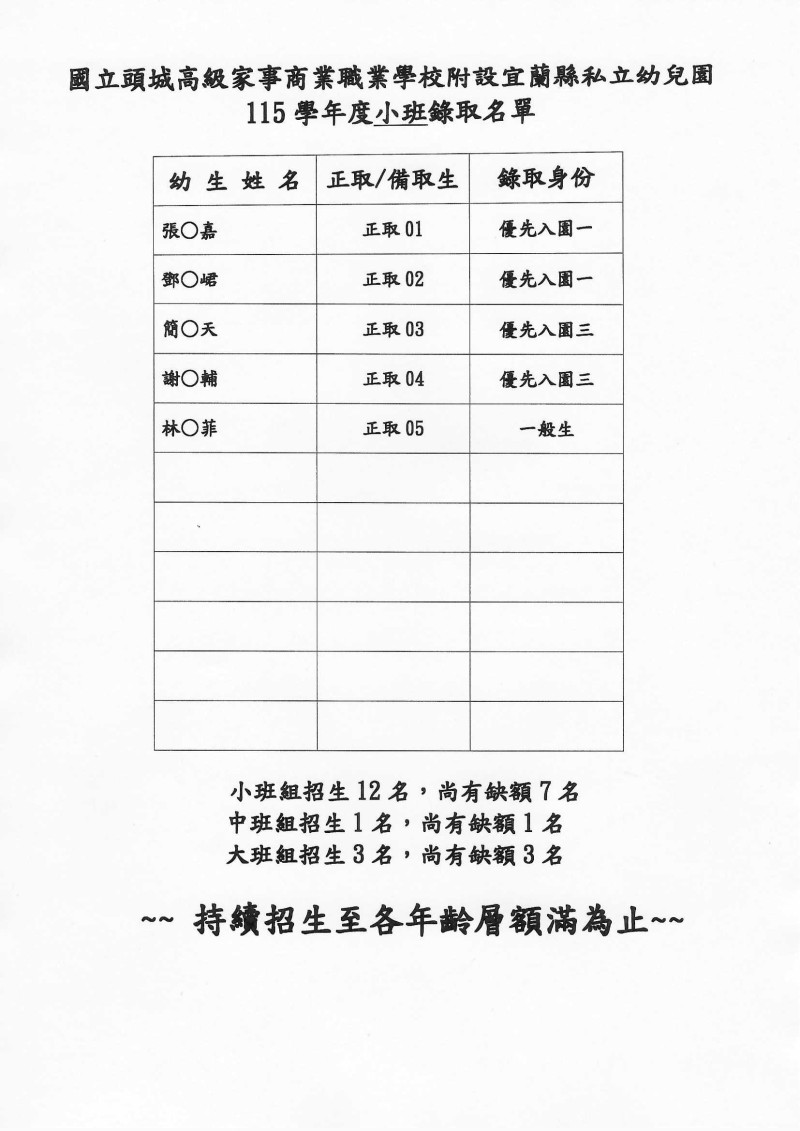 國立頭城高級家事商業職業學校附設宜蘭縣私立幼兒園
115 學年度小班錄取名單
幼 生 姓 名 正取/備取生 錄取身份
張○嘉 正取 01 優先入園一
鄧○峮 正取 02 優先入園一
簡○天 正取 03 優先入園三
謝○輔 正取 04 優先入園三
林○菲 正取 05 一般生
小班組招生 12 名，尚有缺額 7 名
中班組招生 1 名，尚有缺額 1 名
大班組招生 3 名，尚有缺額 3 名
~~ 持續招生至各年齡層額滿為止~~